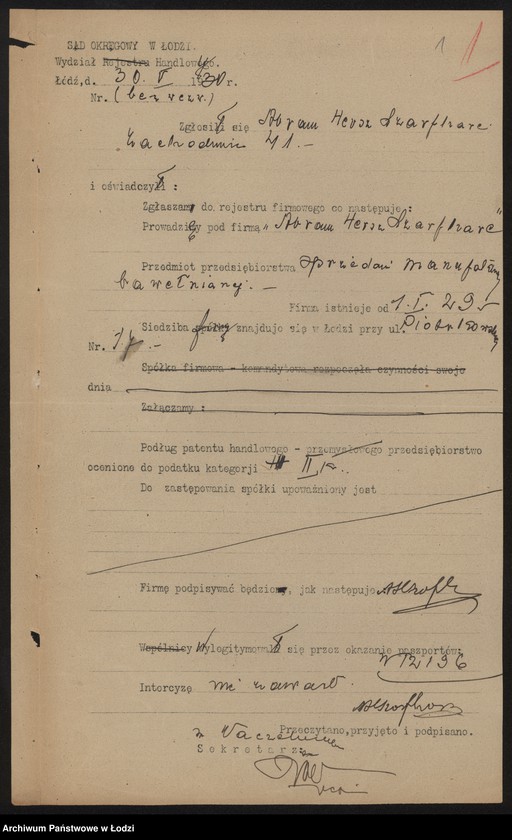 SĄD OKRĘGOWY W ŁODZI.
Wydział Rejestru Handlowego.
Łódź, d. 30. V 1930 r.
Nr. (bez wezw.)
1 1
Zgłosił się Abram Hersz Szarfharc
Zachodnia 41.—
i oświadczył:
Zgłaszam do rejestru firmowego co następuje:
Prowadzę pod firmą „Abram Hersz Szarfharc"
Przedmiot przedsiębiorstwa sprzedaż manufaktury
bawełnianej.—
Firma istnieje od 1.I.29
Siedziba firmy znajduje się w Łodzi przy ul. Piotrkowskiej
Nr. 17.—
Spółka firmowa - komandytowa rozpoczęła czynności swoje
dnia
Załączamy:
Podług patentu handlowego - przemysłowego przedsiębiorstwo
ocenione do podatku kategorji II
Do zastępowania spółki upoważniony jest
Firmę podpisywać będzie, jak następuje
Wspólnicy Wylegitymował się przez okazanie paszportów:
Intercyzę nie zawarł.
Przeczytano, przyjęto i podpisano.
Sekretarz:
Archiwum Państwowe w Łodzi